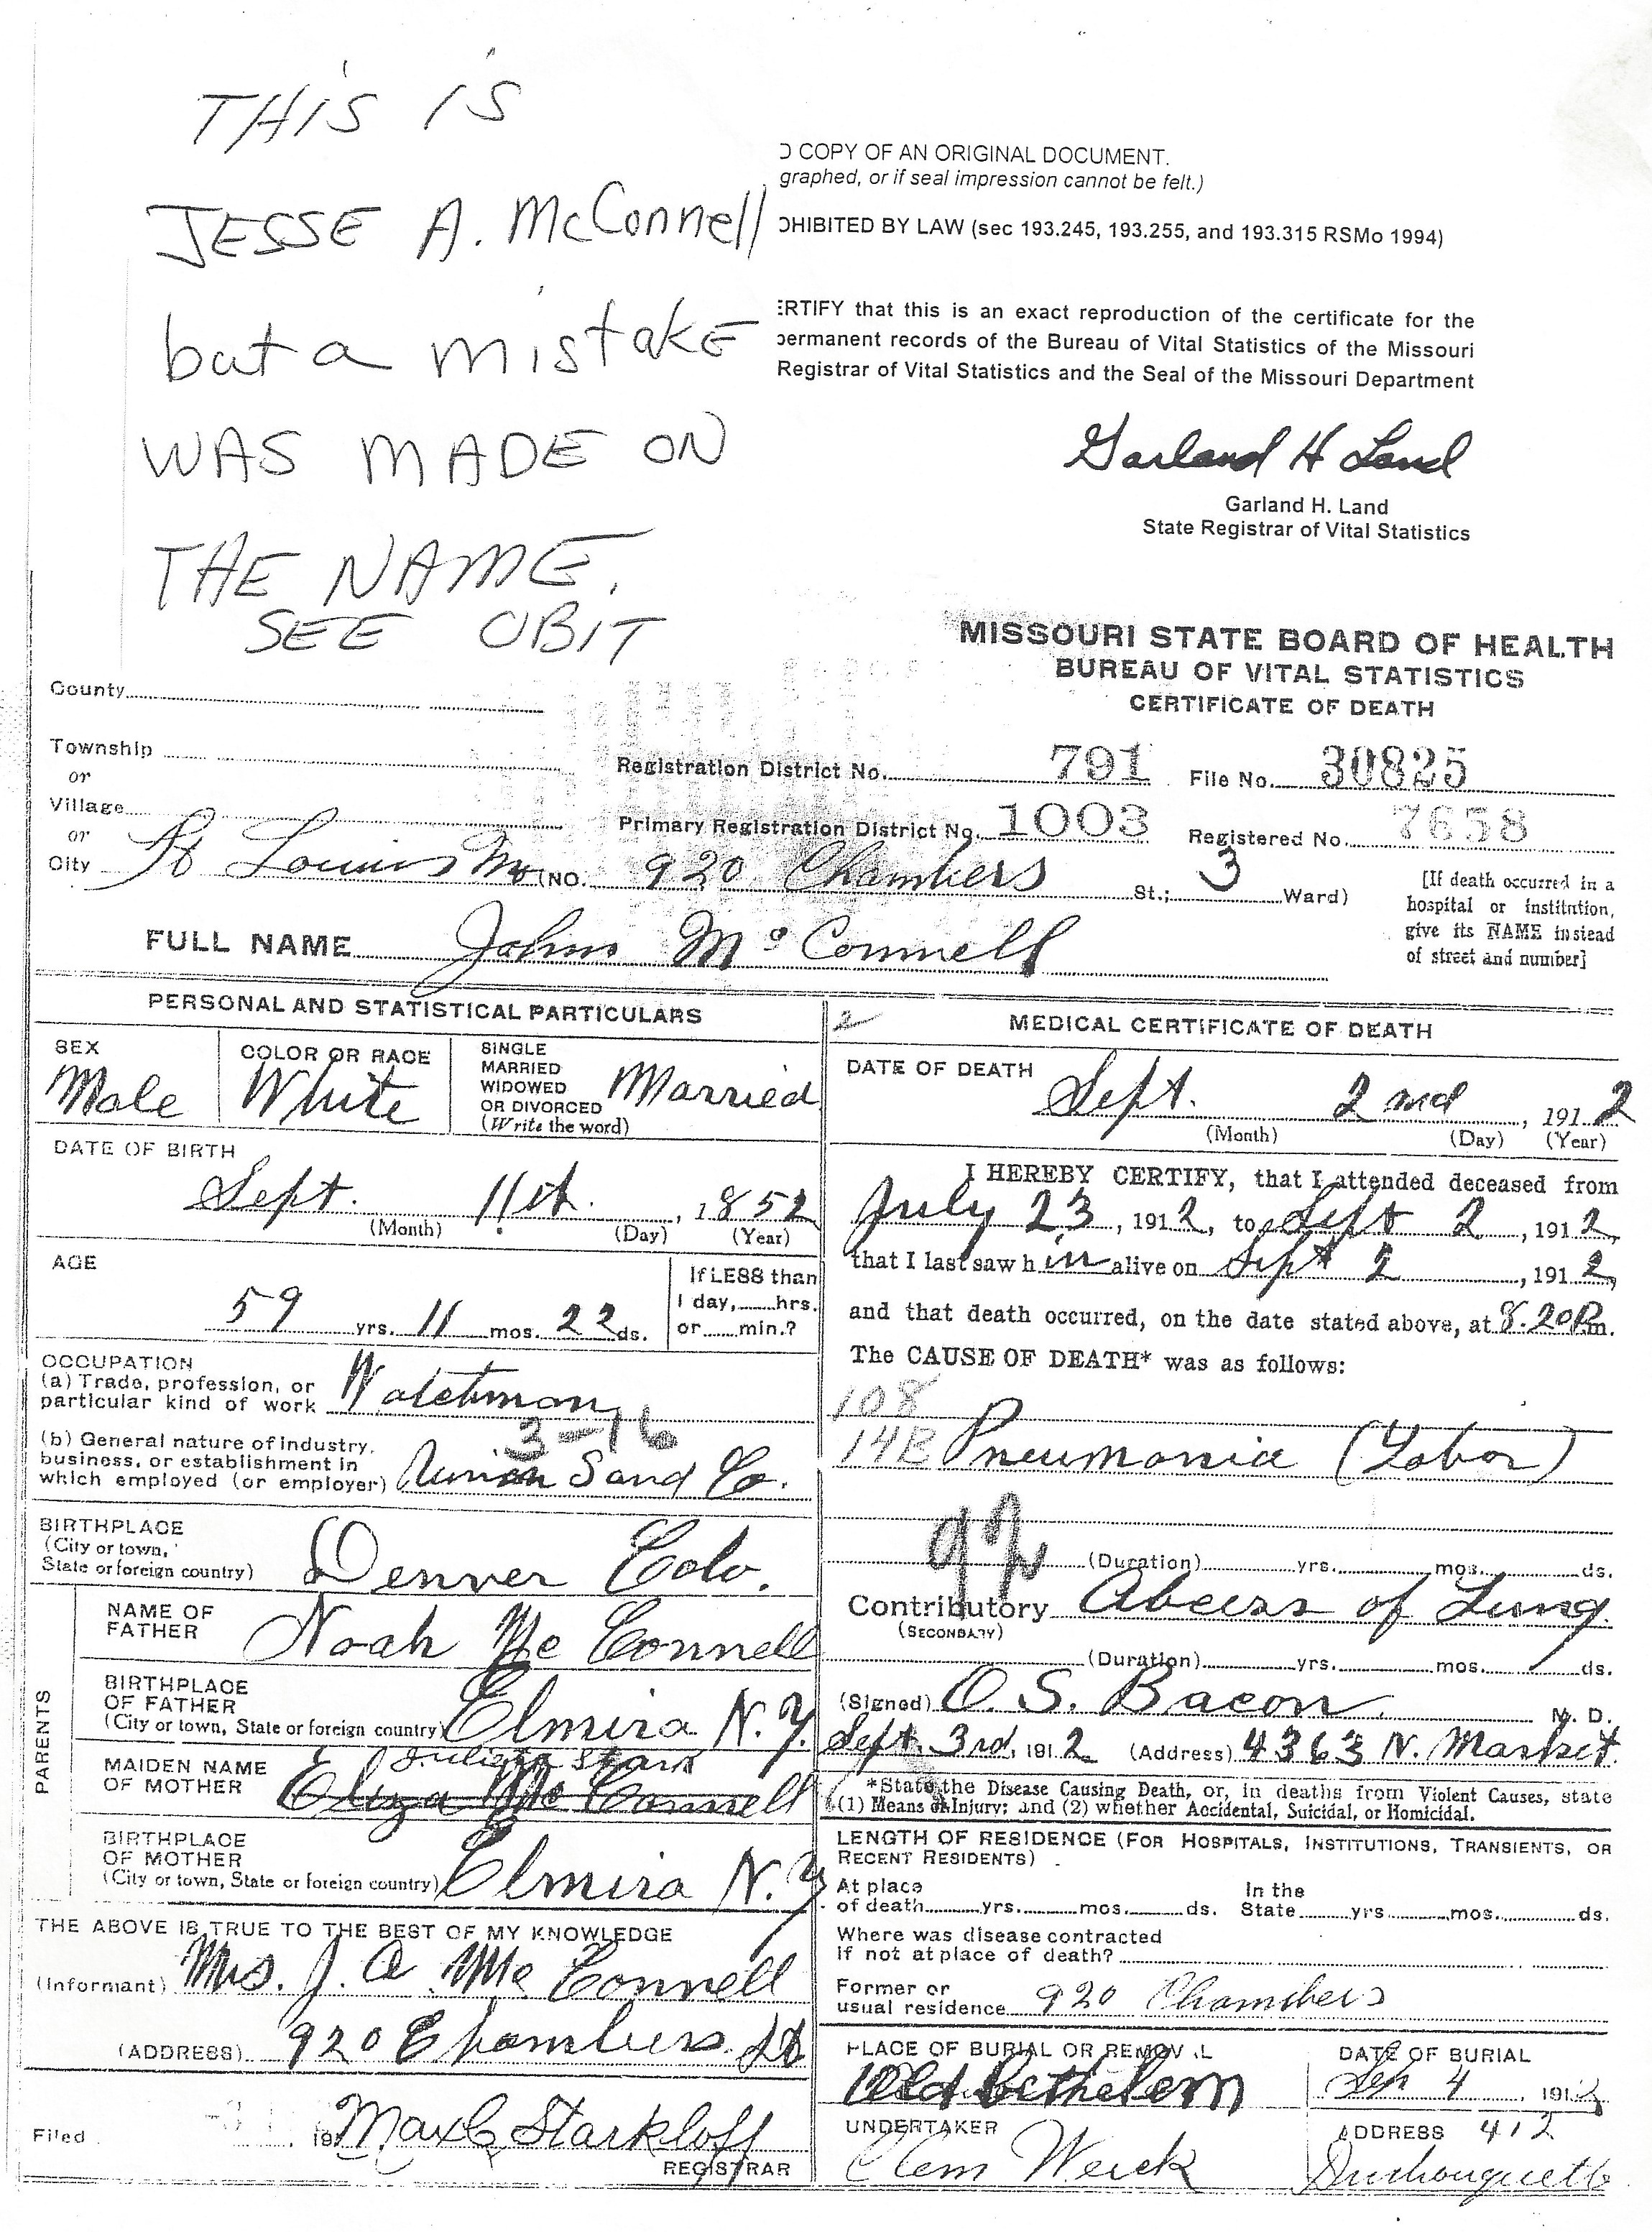 THIS IS
JESSE A. McConnell
but a mistake
WAS MADE ON
THE NAME.
SEE OBIT
COPY OF AN ORIGINAL DOCUMENT.
graphed, or if seal impression cannot be felt.)
OHIBITED BY LAW (sec 193.245, 193.255, and 193.315 RSMo 1994)
ERTIFY that this is an exact reproduction of the certificate for the
permanent records of the Bureau of Vital Statistics of the Missouri
Registrar of Vital Statistics and the Seal of the Missouri Department
Garland H Land
Garland H. Land
State Registrar of Vital Statistics
MISSOURI STATE BOARD OF HEALTH
BUREAU OF VITAL STATISTICS
CERTIFICATE OF DEATH
County
Township
or
Village
or
City St Louis Mo (NO. 920 Chambers St.; 3 Ward)
Registration District No. 791 File No. 30825
Primary Registration District No. 1003 Registered No. 7658
[If death occurred in a
hospital or institution,
give its NAME instead
of street and number]
FULL NAME John Mc Connell
PERSONAL AND STATISTICAL PARTICULARS
SEX
Male
COLOR OR RACE
White
SINGLE
MARRIED
WIDOWED
OR DIVORCED
(Write the word)
Married
DATE OF BIRTH
Sept. 11th. , 1852
(Month) (Day) (Year)
AGE
59 yrs. 11 mos. 22 ds.
If LESS than
1 day, hrs.
or min.?
OCCUPATION
(a) Trade, profession, or
particular kind of work Watchman
3-16
(b) General nature of industry,
business, or establishment in
which employed (or employer) Union Sand Co.
BIRTHPLACE
(City or town,
State or foreign country) Denver Colo.
PARENTS
NAME OF
FATHER Noah Mc Connell
BIRTHPLACE
OF FATHER
(City or town, State or foreign country) Elmira N.Y.
MAIDEN NAME
OF MOTHER
Stark
Eliza Mc Connell
BIRTHPLACE
OF MOTHER
(City or town, State or foreign country) Elmira N.Y
THE ABOVE IS TRUE TO THE BEST OF MY KNOWLEDGE
(Informant) Mrs. J. A Mc Connell
(ADDRESS) 920 Chambers St
Filed 191 Max C Starkloff
REGISTRAR
2
MEDICAL CERTIFICATE OF DEATH
DATE OF DEATH
Sept. 2nd , 1912
(Month) (Day) (Year)
I HEREBY CERTIFY, that I attended deceased from
July 23, 1912, to Sept 2, 1912,
that I last saw him alive on Sept 2, 1912,
and that death occurred, on the date stated above, at 8.20 P.m.
The CAUSE OF DEATH* was as follows:
108
Pneumonia (Lobar)
92
(Duration) yrs. mos. ds.
Contributory Abcess of Lung
(SECONDARY)
(Duration) yrs. mos. ds.
(Signed) O. S. Bacon M. D.
Sept. 3rd, 1912 (Address) 4363 N. Market.
*State the Disease Causing Death, or, in deaths from Violent Causes, state
(1) Means of Injury; and (2) whether Accidental, Suicidal, or Homicidal.
LENGTH OF RESIDENCE (FOR HOSPITALS, INSTITUTIONS, TRANSIENTS, OR
RECENT RESIDENTS)
At place
of death yrs. mos. ds.
In the
State yrs mos. ds.
Where was disease contracted
if not at place of death?
Former or
usual residence 920 Chambers
PLACE OF BURIAL OR REMOVAL
Old Bethelem
DATE OF BURIAL
Sep 4, 1912
UNDERTAKER
Clem Werck
ADDRESS 412
Duchouquette